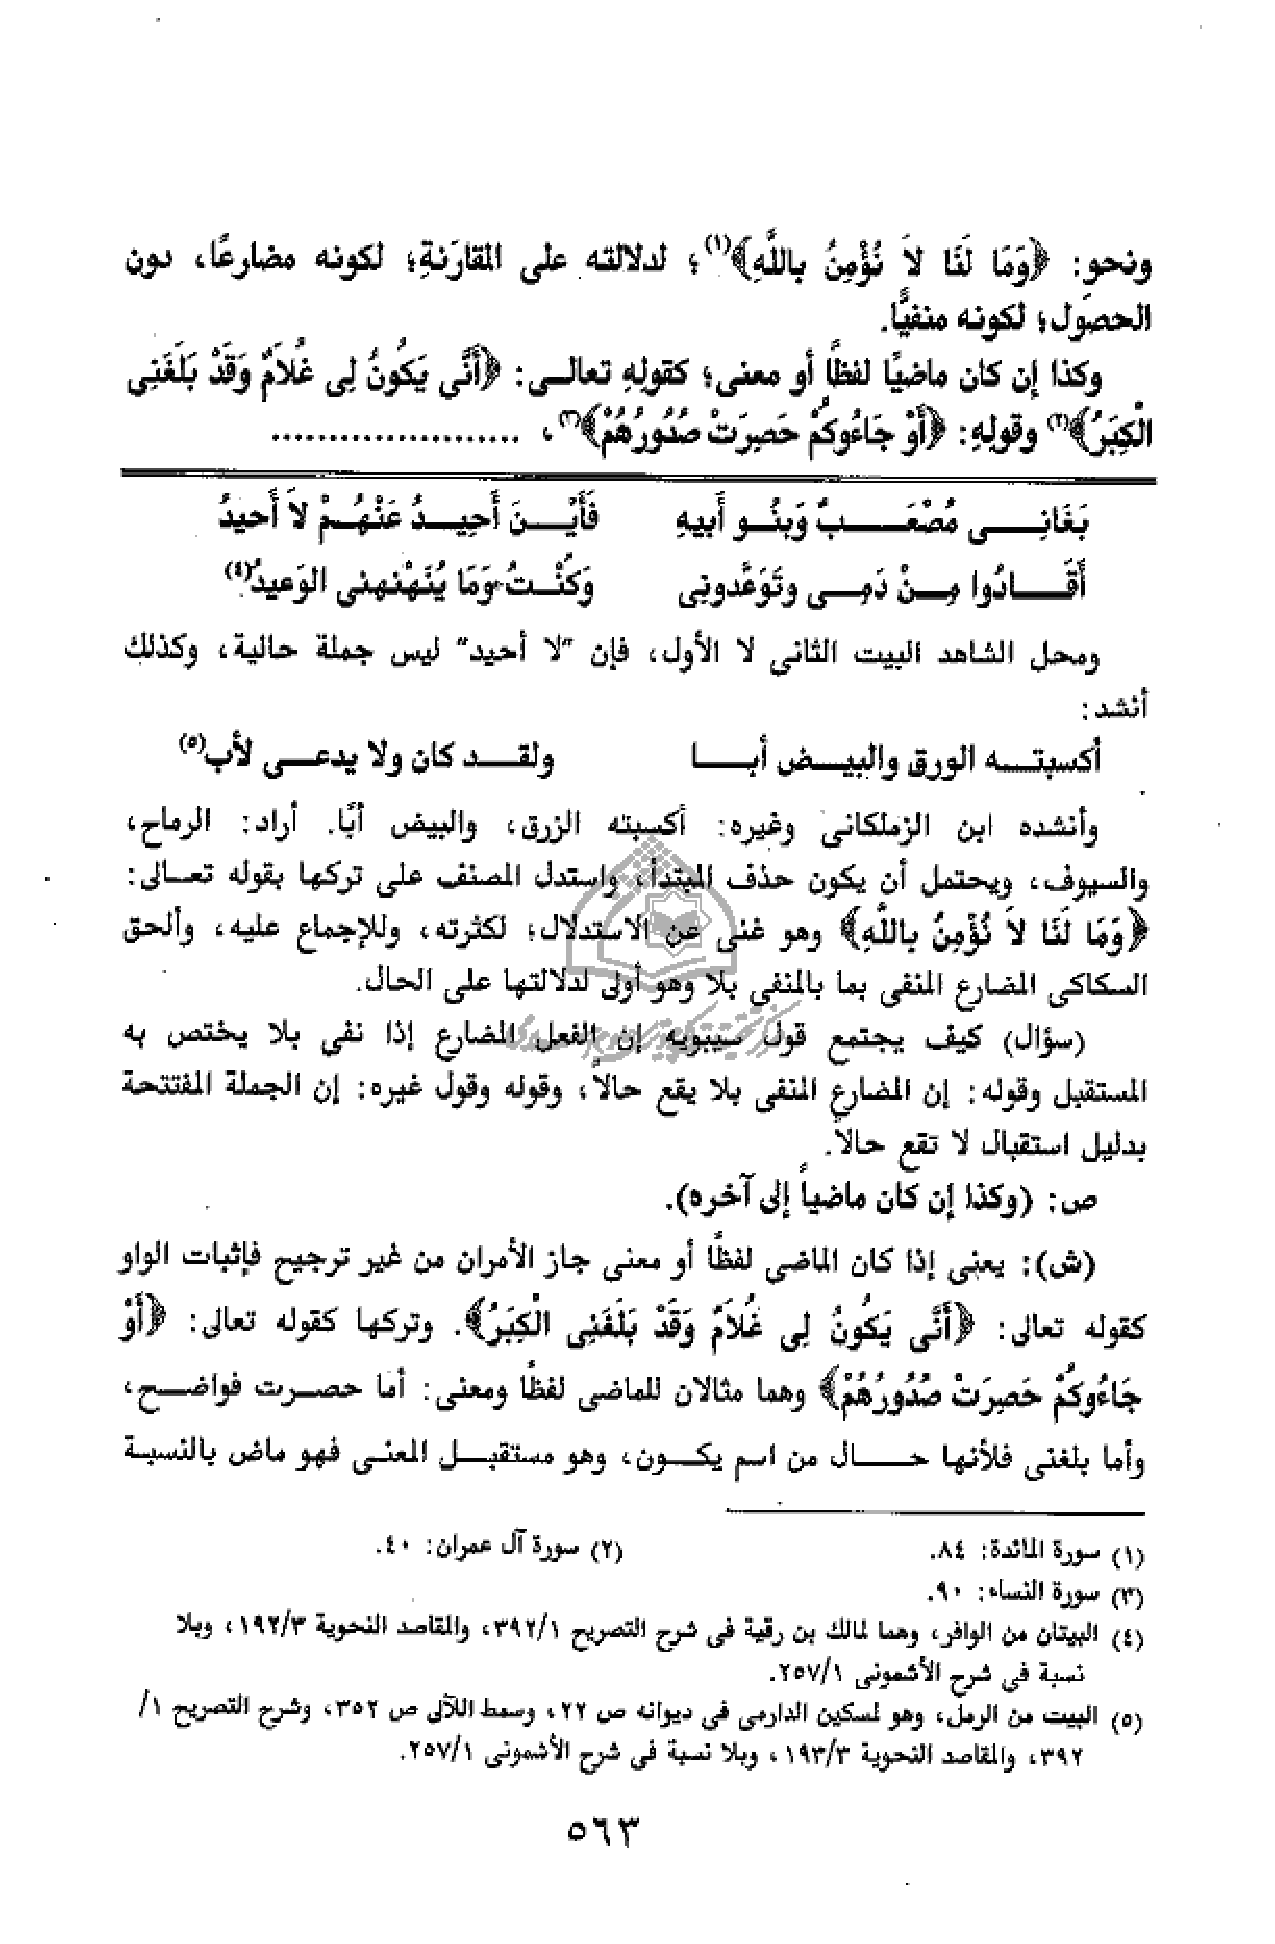 ونحو: ﴿وَمَا لَنَا لاَ نُؤْمِنُ بِاللَّهِ﴾(١)؛ لدلالته على المقارَنةِ؛ لكونه مضارعًا، دون
الحصول؛ لكونه منفيًّا.
وكذا إن كان ماضيًا لفظًا أو معنى؛ كقولهِ تعالى: ﴿أَنَّى يَكُونُ لِى غُلاَمٌ وَقَدْ بَلَغَنِى
الْكِبَرُ﴾(٢) وقولهِ: ﴿أَوْ جَاءُوكُمْ حَصِرَتْ صُدُورُهُمْ﴾(٣)، .....................
بَغَانِـى مُصْعَـبٌ وَبنُـو أَبيهِ فَأَيْـنَ أَحِيـدُ عَنْهُـمْ لاَ أَحيدُ
أَقَـادُوا مِـنْ دَمِـى وتَوَعَّدونِى وَكُنْـتُ وَمَا يُنَهْنهنى الوَعيدُ(٤)
ومحل الشاهد البيت الثانى لا الأول، فإن "لا أحيد" ليس جملة حالية، وكذلك
أنشد:
أكسبتـه الورق والبيـض أبـا ولقـد كان ولا يدعـى لأب(٥)
وأنشده ابن الزملكانى وغيره: أكسبته الزرق، والبيض أبًا. أراد: الرماح،
والسيوف، ويحتمل أن يكون حذف المبتدأ، واستدل المصنف على تركها بقوله تعـالى:
﴿وَمَا لَنَا لاَ نُؤْمِنُ بِاللَّهِ﴾ وهو غنى عن الاستدلال؛ لكثرته، وللإجماع عليه، وألحق
السكاكى المضارع المنفى بما بالمنفى بلا وهو أولى لدلالتها على الحال.
(سؤال) كيف يجتمع قول سيبويه إن الفعل المضارع إذا نفى بلا يختص به
المستقبل وقوله: إن المضارع المنفى بلا يقع حالاً، وقوله وقول غيره: إن الجملة المفتتحة
بدليل استقبال لا تقع حالاً.
ص: (وكذا إن كان ماضياً إلى آخره).
(ش): يعنى إذا كان الماضى لفظًا أو معنى جاز الأمران من غير ترجيح فإثبات الواو
كقوله تعالى: ﴿أَنَّى يَكُونُ لِى غُلاَمٌ وَقَدْ بَلَغَنِى الْكِبَرُ﴾. وتركها كقوله تعالى: ﴿أَوْ
جَاءُوكُمْ حَصِرَتْ صُدُورُهُمْ﴾ وهما مثالان للماضى لفظًا ومعنى: أما حصـرت فواضـح،
وأما بلغنى فلأنها حـال من اسم يكـون، وهو مستقبـل المعنـى فهو ماض بالنسبـة
(١) سورة المائدة: ٨٤. (٢) سورة آل عمران: ٤٠.
(٣) سورة النساء: ٩٠.
(٤) البيتان من الوافر، وهما لمالك بن رقية فى شرح التصريح ٣٩٢/١، والمقاصد النحوية ١٩٢/٣، وبلا
نسبة فى شرح الأشمونى ٢٥٧/١.
(٥) البيت من الرمل، وهو لمسكين الدارمى فى ديوانه ص ٢٢، وسمط اللآلى ص ٣٥٢، وشرح التصريح ١/
٣٩٢، والمقاصد النحوية ١٩٣/٣، وبلا نسبة فى شرح الأشمونى ٢٥٧/١.
٥٦٣